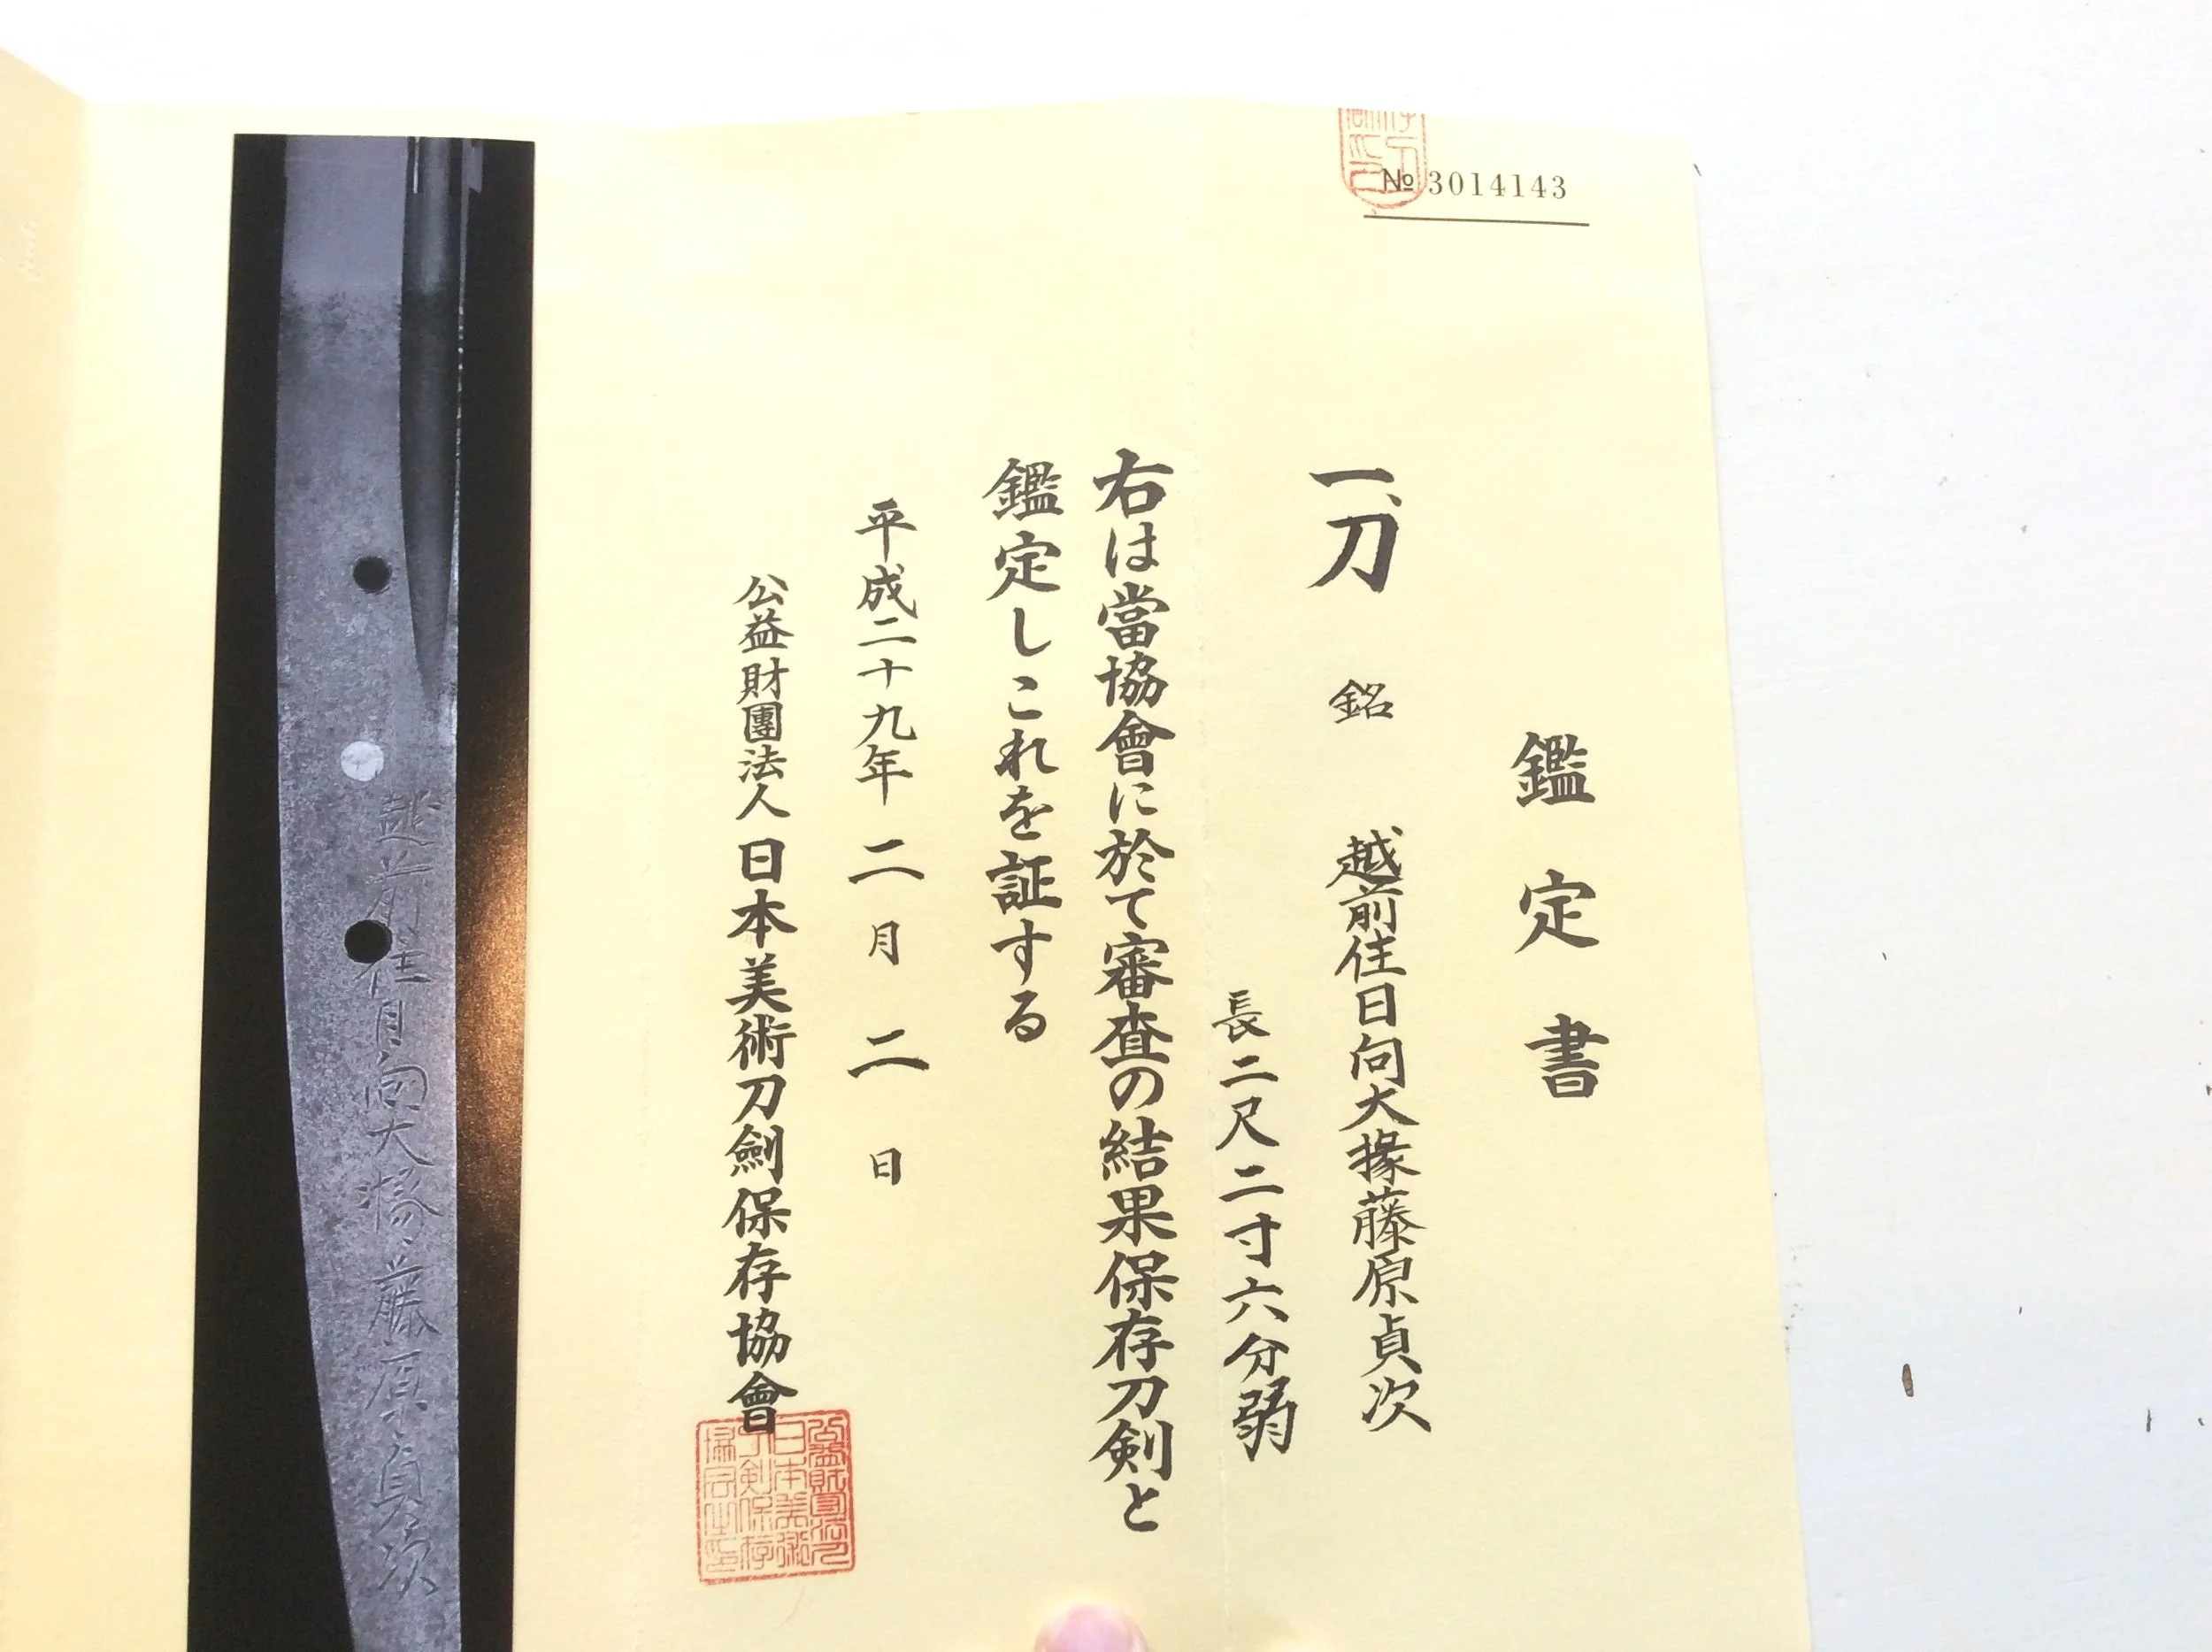 № 3014143
鑑定書
一、刀 銘 越前住日向大掾藤原貞次
長二尺二寸六分弱
右は當協會に於て審査の結果保存刀剣と
鑑定しこれを証する
平成二十九年二月二日
公益財團法人日本美術刀劍保存協會
公益財團法人
日本美術
刀剣保存
協会之印
越前住日向大掾藤原貞次